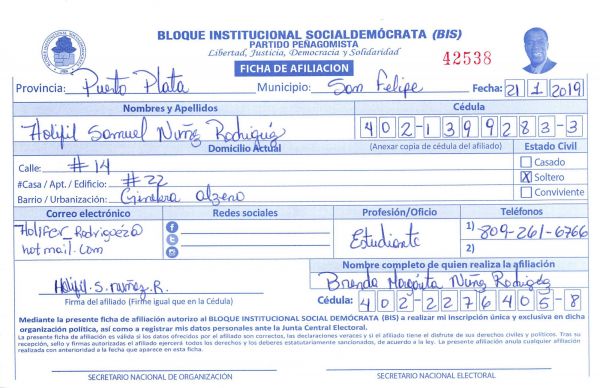 BLOQUE INSTITUCIONAL SOCIALDEMÓCRATA (BIS)
PARTIDO PEÑAGOMISTA
Libertad, Justicia, Democracia y Solidaridad
FICHA DE AFILIACION
42538
Provincia: Puerto Plata Municipio: San Felipe Fecha: 21 1 2019
Nombres y Apellidos Cédula
Holifil Samuel Nuñz Rodriguéz 402-1399283-3
Domicilio Actual (Anexar copia de cédula del afiliado) Estado Civil
Calle: #14 Casado
#Casa / Apt. / Edificio: #22 X Soltero
Barrio / Urbanización: Ginebra alzeno Conviviente
Correo electrónico Redes sociales Profesión/Oficio Teléfonos
Holifer Rodrigoéz@ 1) 809-261-6766
hotmail.com Estudiante 2)
Nombre completo de quien realiza la afiliación
Holifil.S.nuñez.R. Brenda Margarita Nuñz Rodriguéz
Firma del afiliado (Firme igual que en la Cédula) Cédula: 402-2276405-8
Mediante la presente ficha de afiliación autorizo al BLOQUE INSTITUCIONAL SOCIAL DEMÓCRATA (BIS) a realizar mi inscripción única y exclusiva en dicha
organización política, así como a registrar mis datos personales ante la Junta Central Electoral.
La presente ficha de afiliación es válida si los datos ofrecidos por el afiliado son correctos, las declaraciones veraces y si el afiliado tiene el disfrute de sus derechos civiles y políticos. Tras su
recepción, sello y firmas autorizadas el afiliado ejercerá todos los derechos y los deberes estatutariamente sancionados, de acuerdo a la ley. La presente afiliación anula cualquier afiliación
realizada con anterioridad a la fecha que aparece en esta ficha.
SECRETARIO NACIONAL DE ORGANIZACIÓN SECRETARIO NACIONAL ELECTORAL